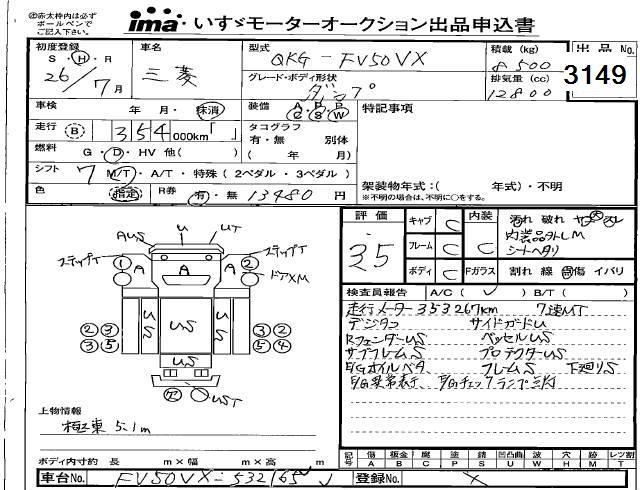 ②赤太枠内は必ず
ボールペンで
ご記入下さい。
ima いすゞモーターオークション出品申込書
初度登録 S・H・R 26/7月
車名 三菱
型式 QKG-FV50VX
積載 (kg) 8500
出品No. 3149
グレード・ボディ形状 ダンプ
排気量 (cc) 12800
車検 年 月・抹消
装備 A/C P/S P/W
特記事項
走行 B 354 000km「 」
タコグラフ 有・無 別体
( 年 月)
燃料 G・D・HV 他( )
シフト 7 M/T・A/T・特殊 (2ペダル・3ペダル)
架装物年式:( 年式)・不明
※不明の場合は、不明に○をする。
色 指定 R券 有・無 13480 円
評価 3.5
キャブ C
フレーム C
ボディ C
内装 C
Fガラス
汚れ 破れ ヤケ スレ
内装品外しM
シートヘタリ
割れ 線 傷 イバリ
AUS U UT
ステップT ① A A A ② ステップT
ドアXM
US US US
②③ ③②
③⑤ ⑤④
US
UST
検査員報告 A/C( ) B/T( )
走行メーター353267km 7速MT
デジタコ サイドガードU
RフェンダーUS ベッセルUS
サブフレームS プロテクターUS
E/Gオイルベタ フレームS 下廻りS
E/G異常表示、E/Gチェックランプ点灯
上物情報
極東 5.1m
ボディ内寸約 長 m×幅 m×高 m
記号 傷A 板金B 腐C 塗P 錆S 凹U 凸曲W 穴H 跡M レツ割T
車台No. FV50VX-532165
登録No.